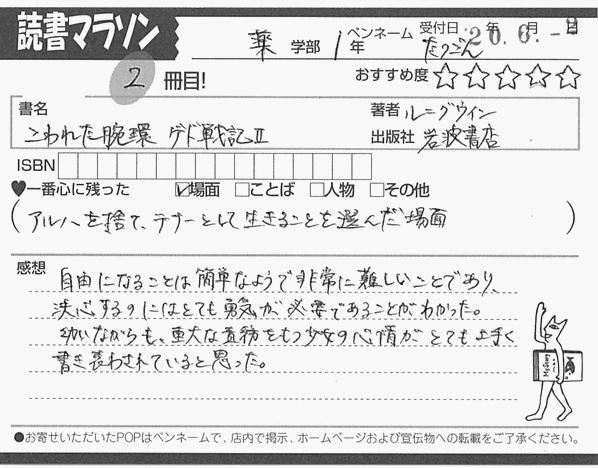 読書マラソン
薬 学部 1年 ペンネーム たつごん 受付日 年 月 日
20.6.-9
2 冊目! おすすめ度☆☆☆☆☆
書名 こわれた腕環 ゲド戦記II
著者 ル=グウィン
出版社 岩波書店
ISBN
♥一番心に残った ☑場面 □ことば □人物 □その他
( アルハを捨て、テナーとして生きることを選んだ場面 )
感想
自由になることは簡単なようで非常に難しいことであり、
決心するのにはとても勇気が必要であることがわかった。
幼いながらも、重大な責務をもつ少女の心情がとても上手く
書き表わされていると思った。
●お寄せいただいたPOPはペンネームで、店内で掲示、ホームページおよび宣伝物への転載をご了承ください。